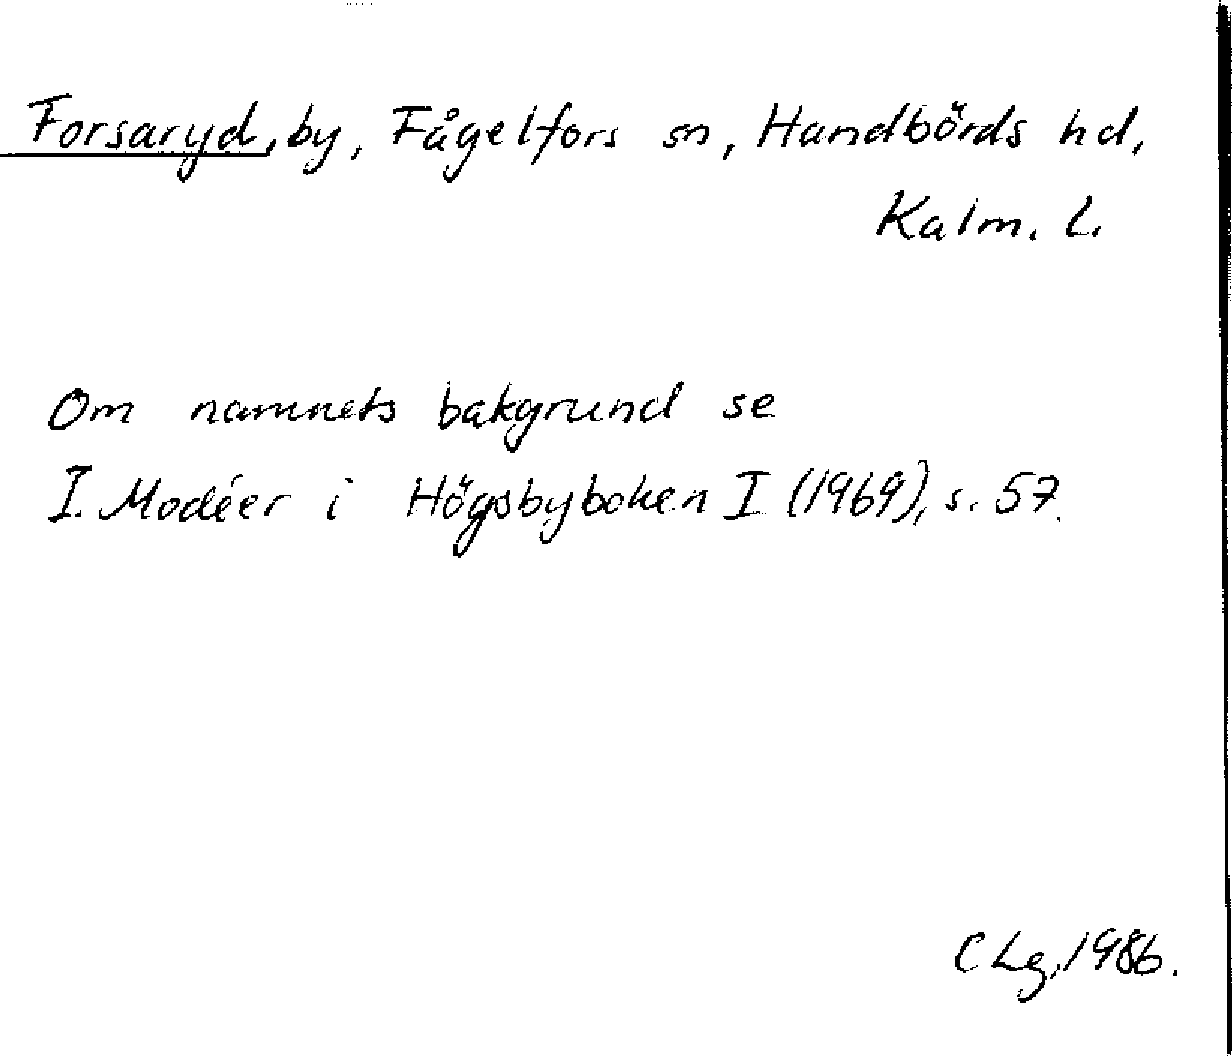 Forsaryd, by, Fågelfors sn, Handbörds hd,
Kalm. L.
Om namnets bakgrund se
I. Modéer i Högsbyboken I (1969), s. 57.
C Lg, 1986.